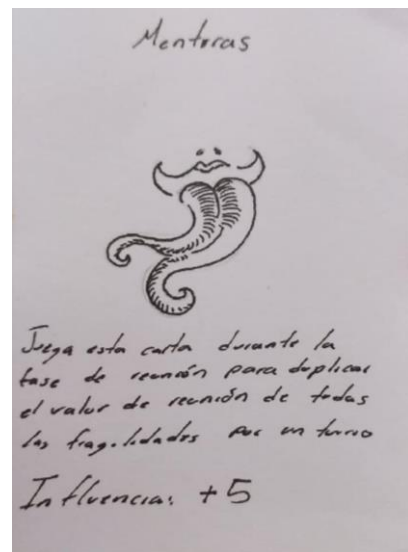 Mentiras
Juega esta carta durante la
fase de reunión para duplicar
el valor de reunión de todas
las fragilidades por un turno
Influencia: +5